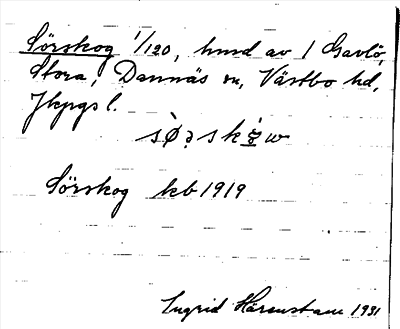 Sörskog 1/120, hmd av 1 Gavlö,
Stora, Dannäs sn, Västbo hd,
Jkpgs l.
Sörskog kb 1919
Ingrid Härenstam 1931